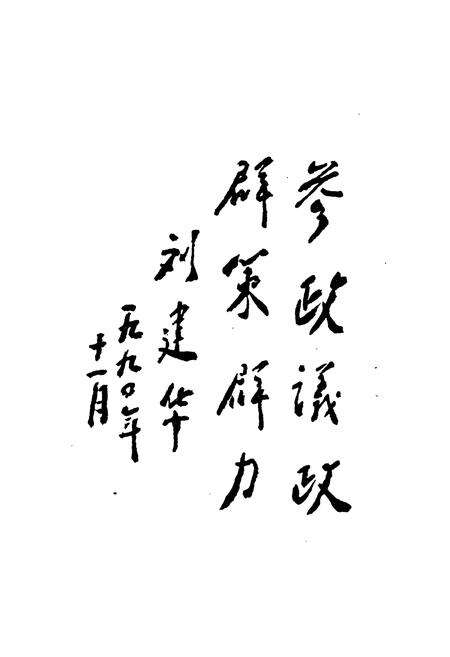 参政議政
群策群力
刘建华
一九九〇年
十一月